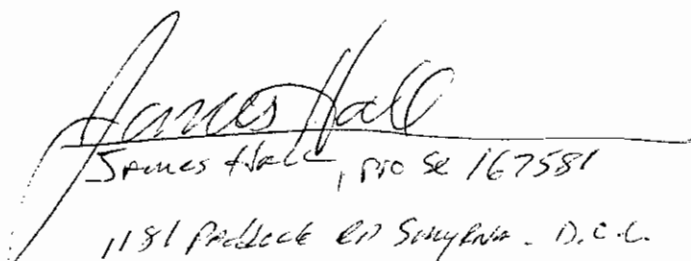 James Hall
James Hall, pro se 167581
1181 Paddock RD Smyrna - D.C.C.